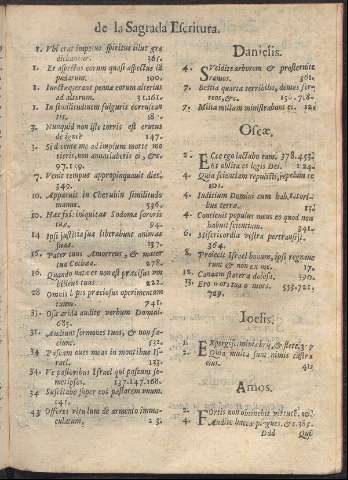 de la Sagrada Escritura.
1. Vbi erat impetus spiritus illuc gra
diebantur. 365.
1. Et aspectus eorum quasi aspectus lã
padarum. 100.
1. Iunctaque erant pennæ eorum alterius
ad alterum. 31.161.
1. In similitudinem fulguris coruscan-
tis.
3. Nunquid non iste torris est erutus
de igne 147.
3. Si dicente me ad impium morte mo
rieris, non annuntiaberis ei, &c.
97.119.
7. Venit tempus appropinquauit dies.
349.
10. Apparuit in Cherubin similitudo
manus. 536.
Hæc fuit iniquitas Sodomæ sororis
tuæ. 94.
14 Ipsi iustitia sua liberabunt animas
suas. 137.
16. Pater tuus Amorreus, & mater
tua Cethæa. 278.
16. Quando nata es non est præcisus vm
bilicus tuus 222.
28 Omnis lapis præciosus operimentum
tuum. 741.
Ossa arida audite verbum Domini
685.
Audiunt sermones tuos, & non fa-
ciunt. 532.
34 Pascam oues meas in montibus Is-
rael. 133.
34. Væ pastoribus Israel qui pascunt se-
metipsos. 137.147.168.
34 Suscitabo super eos pastorem vnum.
43 Offeres vitulum de armento imma-
culatum. 23.
Danielis.
4. Succidite arborem & præscindite
ramos. 361.
7. Bestia quarta terribilis, dentes fer-
reos, &c.
7. Millia millium ministrabant ei.
Oseæ.
2. Ecce ego lactabo eam. 378.453.
4. Quia scientiam repulisti, repellam te
4. Iuditium Domini cum habitatori-
bus terræ.
4. Conticuit populus meus eo quod non
habuit scientiam. 341.
6. Misericordia vestra pertransijt.
364.
8. Proiecit Israel bonum, ipsi regnaue
runt & non ex me. 17.
12. Canaam statera dolosa. 390.
13. Ero mors tua o mors. 553.721.
729.
Ioelis.
1. Expergiscimini ebrij, & flete.
2. Quia multa sunt nimis castra
eius. 412
Amos.
2. Fortis non obtinebit virtutẽ.
4. Audite vaccæ pingues, &c.385.
Ddd Qui